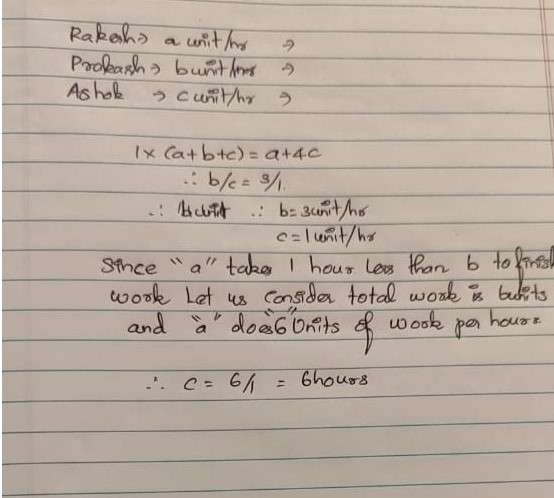 Rakesh → a unit/hr →
Prakash → b unit/hr →
Ashok → c unit/hr →
1 x (a+b+c) = a+4c
∴ b/c = 3/1
∴ ∴ b = 3unit/hr
c = 1 unit/hr
Since "a" takes 1 hour less than b to finish
work Let us consider total work is 6units
and "a" does "6" Units of work per hour
∴ c = 6/1 = 6hours